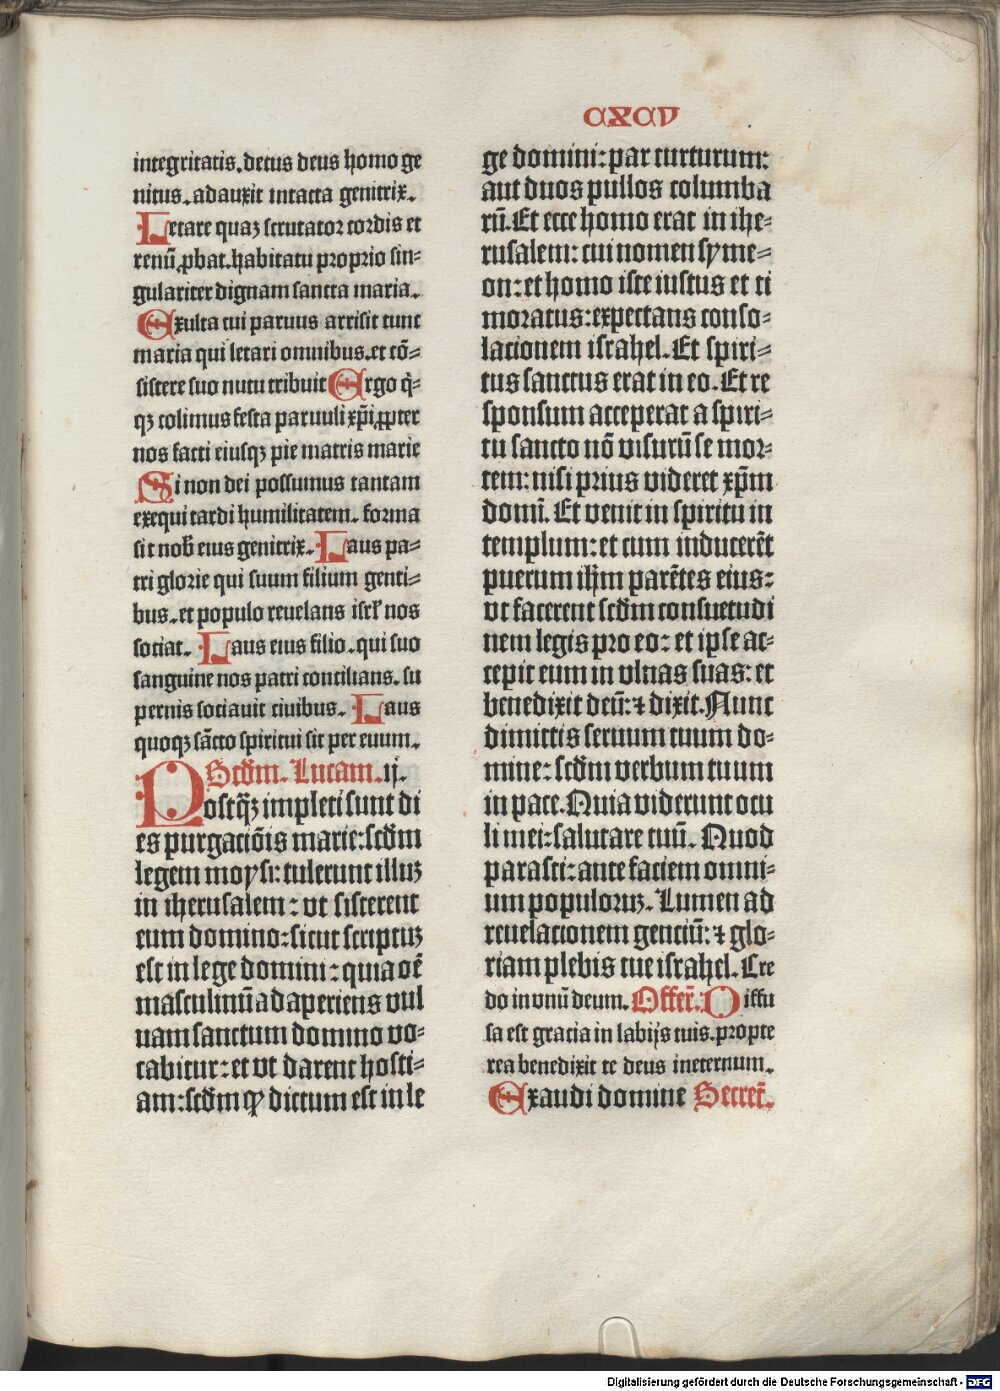 cxcv
integritatis. decus deus homo ge
nitus. adauxit intacta genitrix.
Letare quaꝫ scrutator cordis et
renū ꝓbat. habitatu proprio sin⸗
gulariter dignam sancta maria.
Exulta cui paruus arrisit tunc
maria qui letari omnibus. et cō⸗
sistere suo nutu tribuit Ergo q̇⸗
qꝫ colimus festa paruuli xp̄i ꝓpter
nos facti eiusqꝫ pie matris marie
Si non dei possumus tantam
exequi tardi humilitatem. forma
sit nob̄ eius genitrix. Laus pa⸗
tri glorie qui suum filium genti⸗
bus. et populo reuelans isrl̄ nos
sociat. Laus eius filio. qui suo
sanguine nos patri concilians. su
pernis sociauit ciuibus. Laus
quoqꝫ sācto spiritui sit per euum.
Scd̄m. Lucam. ij.
Postq̄ꝫ impleti sunt di
es purgaciōis marie: scd̄m
legem moysi: tulerunt illuꝫ
in iherusalem: vt sisterent
eum domino: sicut scriptuꝫ
est in lege domini: quia oē
masculinū adaperiens vul
uam sanctum domino vo⸗
cabitur: et vt darent hosti⸗
am: scd̄m ꝙ dictum est in le
ge domini: par turturum:
aut duos pullos columba
rū. Et ecce homo erat in ihe⸗
rusalem: cui nomen syme⸗
on: et homo iste iustus et ti
moratus: expectans conso⸗
lacionem israhel. Et spiri⸗
tus sanctus erat in eo. Et re
sponsum acceperat a spiri⸗
tu sancto nō visurū se mor⸗
tem: nisi prius videret xp̄m
domī. Et venit in spiritu in
templum: et cum inducerēt
puerum ihm̄ parētes eius:
vt facerent scd̄m consuetudi
nem legis pro eo: et ipse ac⸗
cepit eum in vlnas suas: et
benedixit deū: ⁊ dixit. Nunc
dimittis seruum tuum do⸗
mine: scd̄m verbum tuum
in pace. Quia viderunt ocu
li mei: salutare tuū. Quod
parasti: ante faciem omni⸗
um populoruꝫ. Lumen ad
reuelacionem genciū: ⁊ glo⸗
riam plebis tue israhel. Cre
do in vnū deum. Offer̄. Diffu
sa est gracia in labijs tuis. propte
rea benedixit te deus ineternum.
Exaudi domine Secret̄.
Digitalisierung gefördert durch die Deutsche Forschungsgemeinschaft - DFG